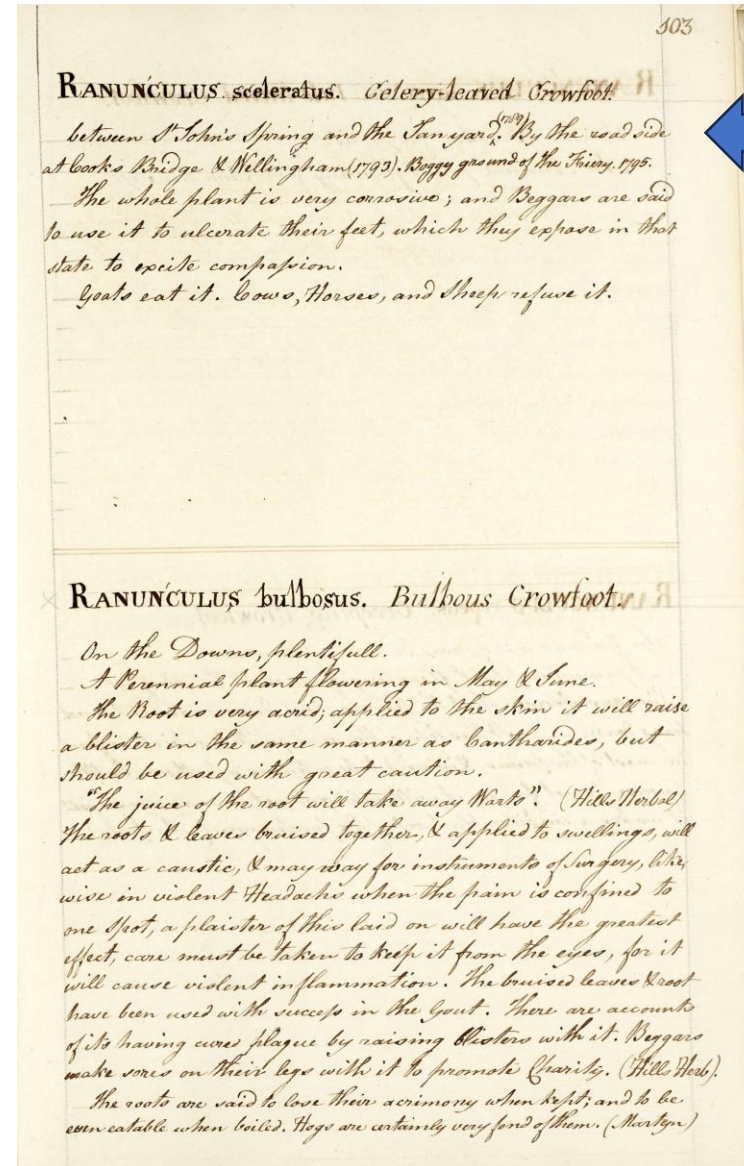 103
RANUNCULUS sceleratus. Celery-leaved Crowfoot.
between St John's Spring and the Tanyard (1789). By the road side
at Cooks Bridge & Wellingham (1793). Boggy ground of the Friery. 1795.
The whole plant is very corrosive; and Beggars are said
to use it to ulcerate their feet, which they expose in that
state to excite compaſsion.
Goats eat it. Cows, Horses, and Sheep refuse it.
RANUNCULUS bulbosus. Bulbous Crowfoot.
On the Downs, plentifull.
A Perennial plant flowering in May & June.
The Root is very acrid; applied to the skin it will raise
a blister in the same manner as Cantharides, but
should be used with great caution.
"The juice of the root will take away Warts". (Hills Herbal)
The roots & leaves bruised together, & applied to swellings, will
act as a caustic, & may way for instruments of Surgery, like,
wise in violent Headachs when the pain is confined to
one Spot, a plaister of this laid on will have the greatest
effect, care must be taken to keep it from the eyes, for it
will cause violent inflammation. The bruised leaves & root
have been used with succeſs in the Gout. There are accounts
of its having cured plague by raising blisters with it. Beggars
make sores on their legs with it to promote Charity. (Hills Herb).
The roots are said to lose their acrimony when kept; and to be
even eatable when boiled. Hogs are certainly very fond of them. (Martyn)